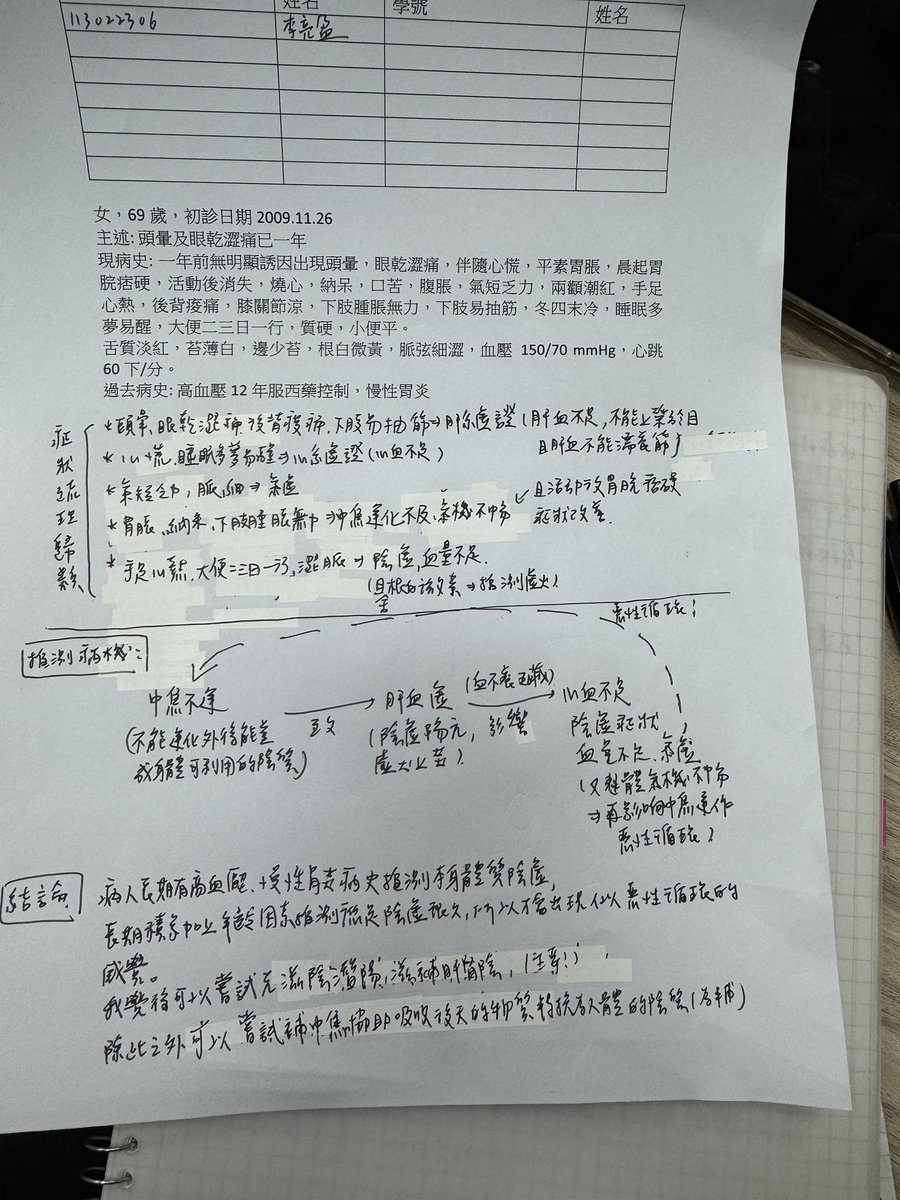 姓名 學號 姓名
113022306 李亮盈
女，69 歲，初診日期 2009.11.26
主述: 頭暈及眼乾澀痛已一年
現病史: 一年前無明顯誘因出現頭暈，眼乾澀痛，伴隨心慌，平素胃脹，晨起胃
脘痞硬，活動後消失，燒心，納呆，口苦，腹脹，氣短乏力，兩顴潮紅，手足
心熱，後背痠痛，膝關節涼，下肢腫脹無力，下肢易抽筋，冬四末冷，睡眠多
夢易醒，大便二三日一行，質硬，小便平。
舌質淡紅，苔薄白，邊少苔，根白微黃，脈弦細澀，血壓 150/70 mmHg，心跳
60 下/分。
過去病史: 高血壓 12 年服西藥控制，慢性胃炎
症狀梳理歸類
*頭暈、眼乾澀痛 後背痠痛、下肢易抽筋⇒肝系虛證 (肝血不足，不能上榮於目
且肝血不能濡養筋)
*心慌、睡眠多夢易醒⇒心系虛證 (心血不足)
*氣短乏力，脈細⇒氣虛
*胃脹、納呆、下肢腫脹無力⇒中焦運化不及、氣機不暢
且活動後胃脘痞硬
症狀改善
*手足心熱、大便二三日一行，澀脈⇒陰虛，血量不足
(且根白微黃⇒推測虛火)
舌
推測病機:
惡性循環!
中焦不運
(不能運化外後能量
成身體可利用的陰質)
導致
肝血虛
(陰虛陽亢，
虛火上苦)
(血不養臟)
影響
心血不足
陰虛症狀
血量不足、氣虛
(又整體氣機不暢
⇒再影响中焦運作
惡性循環)
結論
病人長期有高血壓、慢性胃炎病史推測本身體質陰虛，
長期積累加上年齡因素推測應是陰虛既久，所以才會出現似惡性循環的
感覺。
我覺得可以嘗試先滋陰潛陽，滋補肝腎陰，(主要!)，
除此之外可以嘗試補中焦協助吸收後天的物質轉換成人體的陰質 (為輔)